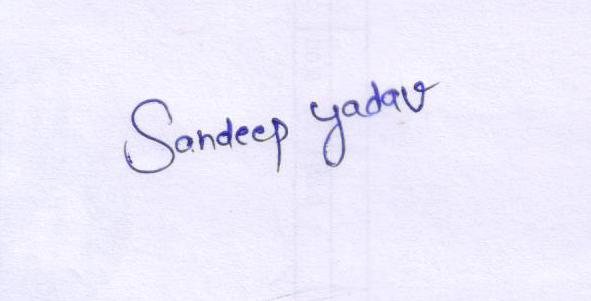 Sandeep yadav